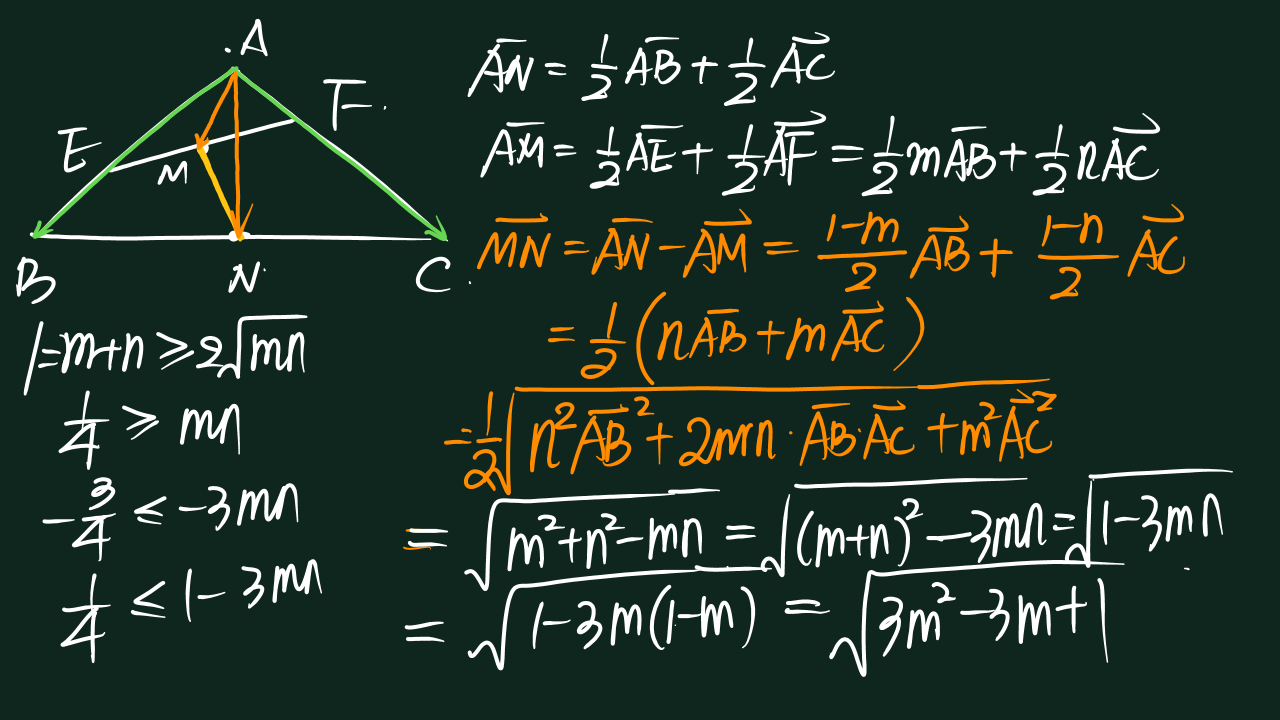 A
E
F
M
B
N
C
1=m+n≥2√mn
1/4 ≥ mn
-3/4 ≤ -3mn
1/4 ≤ 1-3mn
AN = 1/2 AB + 1/2 AC
AM = 1/2 AE + 1/2 AF = 1/2 mAB + 1/2 nAC
MN = AN - AM = (1-m)/2 AB + (1-n)/2 AC
= 1/2 (nAB + mAC)
= 1/2 √(n²AB² + 2mn·AB·AC + m²AC²)
= √(m²+n²-mn) = √((m+n)²-3mn) = √(1-3mn)
= √(1-3m(1-m)) = √(3m²-3m+1)